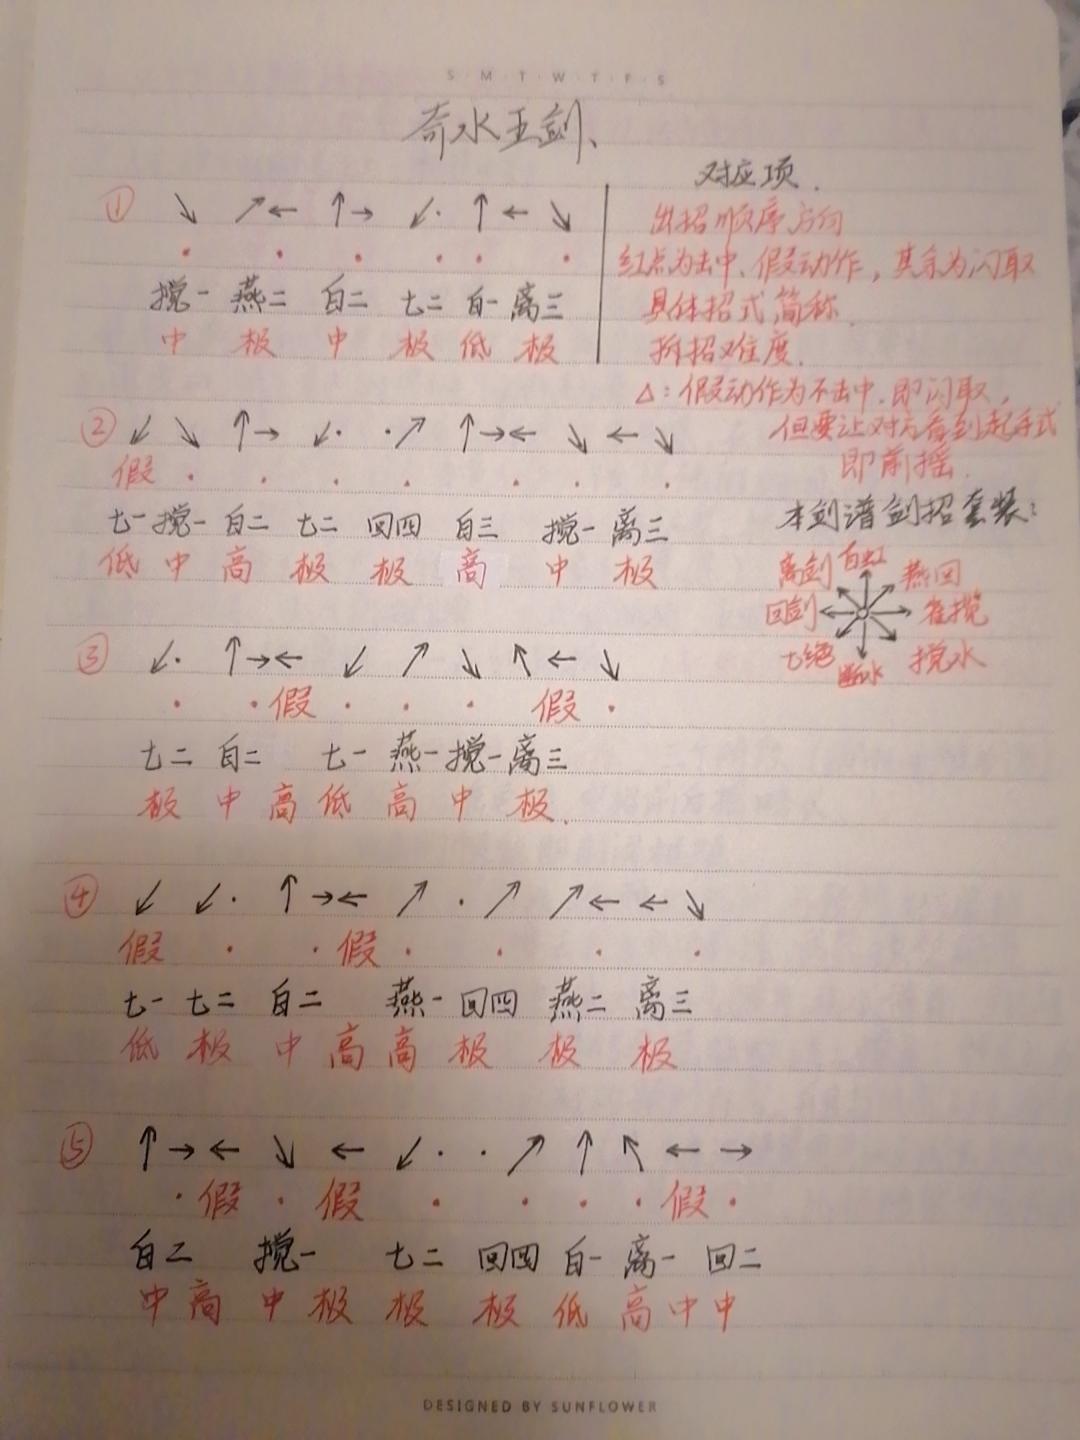 S M T W T F S
奇水王剑、
对应项.
① ↘ ↗← ↑→ ↙· ↑ ← ↘
出招顺序方向
· · · · · ·
红点为击中、假动作，其余为闪取
搅一 燕二 白二 七二 白一 离三
具体招式简称.
中 极 中 极 低 极
拆招难度.
△：假动作为不击中.即闪取，
但要让对方看到起手式
即前摇.
② ↙ ↘ ↑→ ↙· ·↗ ↑→← ↘ ← ↘
假 · · · · · · ·
七一 搅一 白二 七二 回四 白三 搅一 离三
低 中 高 极 极 高 中 极
本剑谱剑招套装：
离剑 白虹 燕回
回剑 雀搅
七绝 断水 搅水
③ ↙· ↑→← ↙ ↗ ↘ ↖ ← ↘
· · 假 · · · 假 ·
七二 白二 七一 燕一 搅一 离三
极 中 高 低 高 中 极.
④ ↙ ↙· ↑ →← ↗ · ↗ ↗← ← ↘
假 · · 假 · · · ·
七一 七二 白二 燕一 回四 燕二 离三
低 极 中 高 高 极 极 极
⑤ ↑→← ↘ ← ↙· ·↗ ↑ ↖ ← →
· 假 · 假 · · · · 假 ·
白二 搅一 七二 回四 白一 离一 回二
中 高 中 极 极 极 低 高 中 中
DESIGNED BY SUNFLOWER